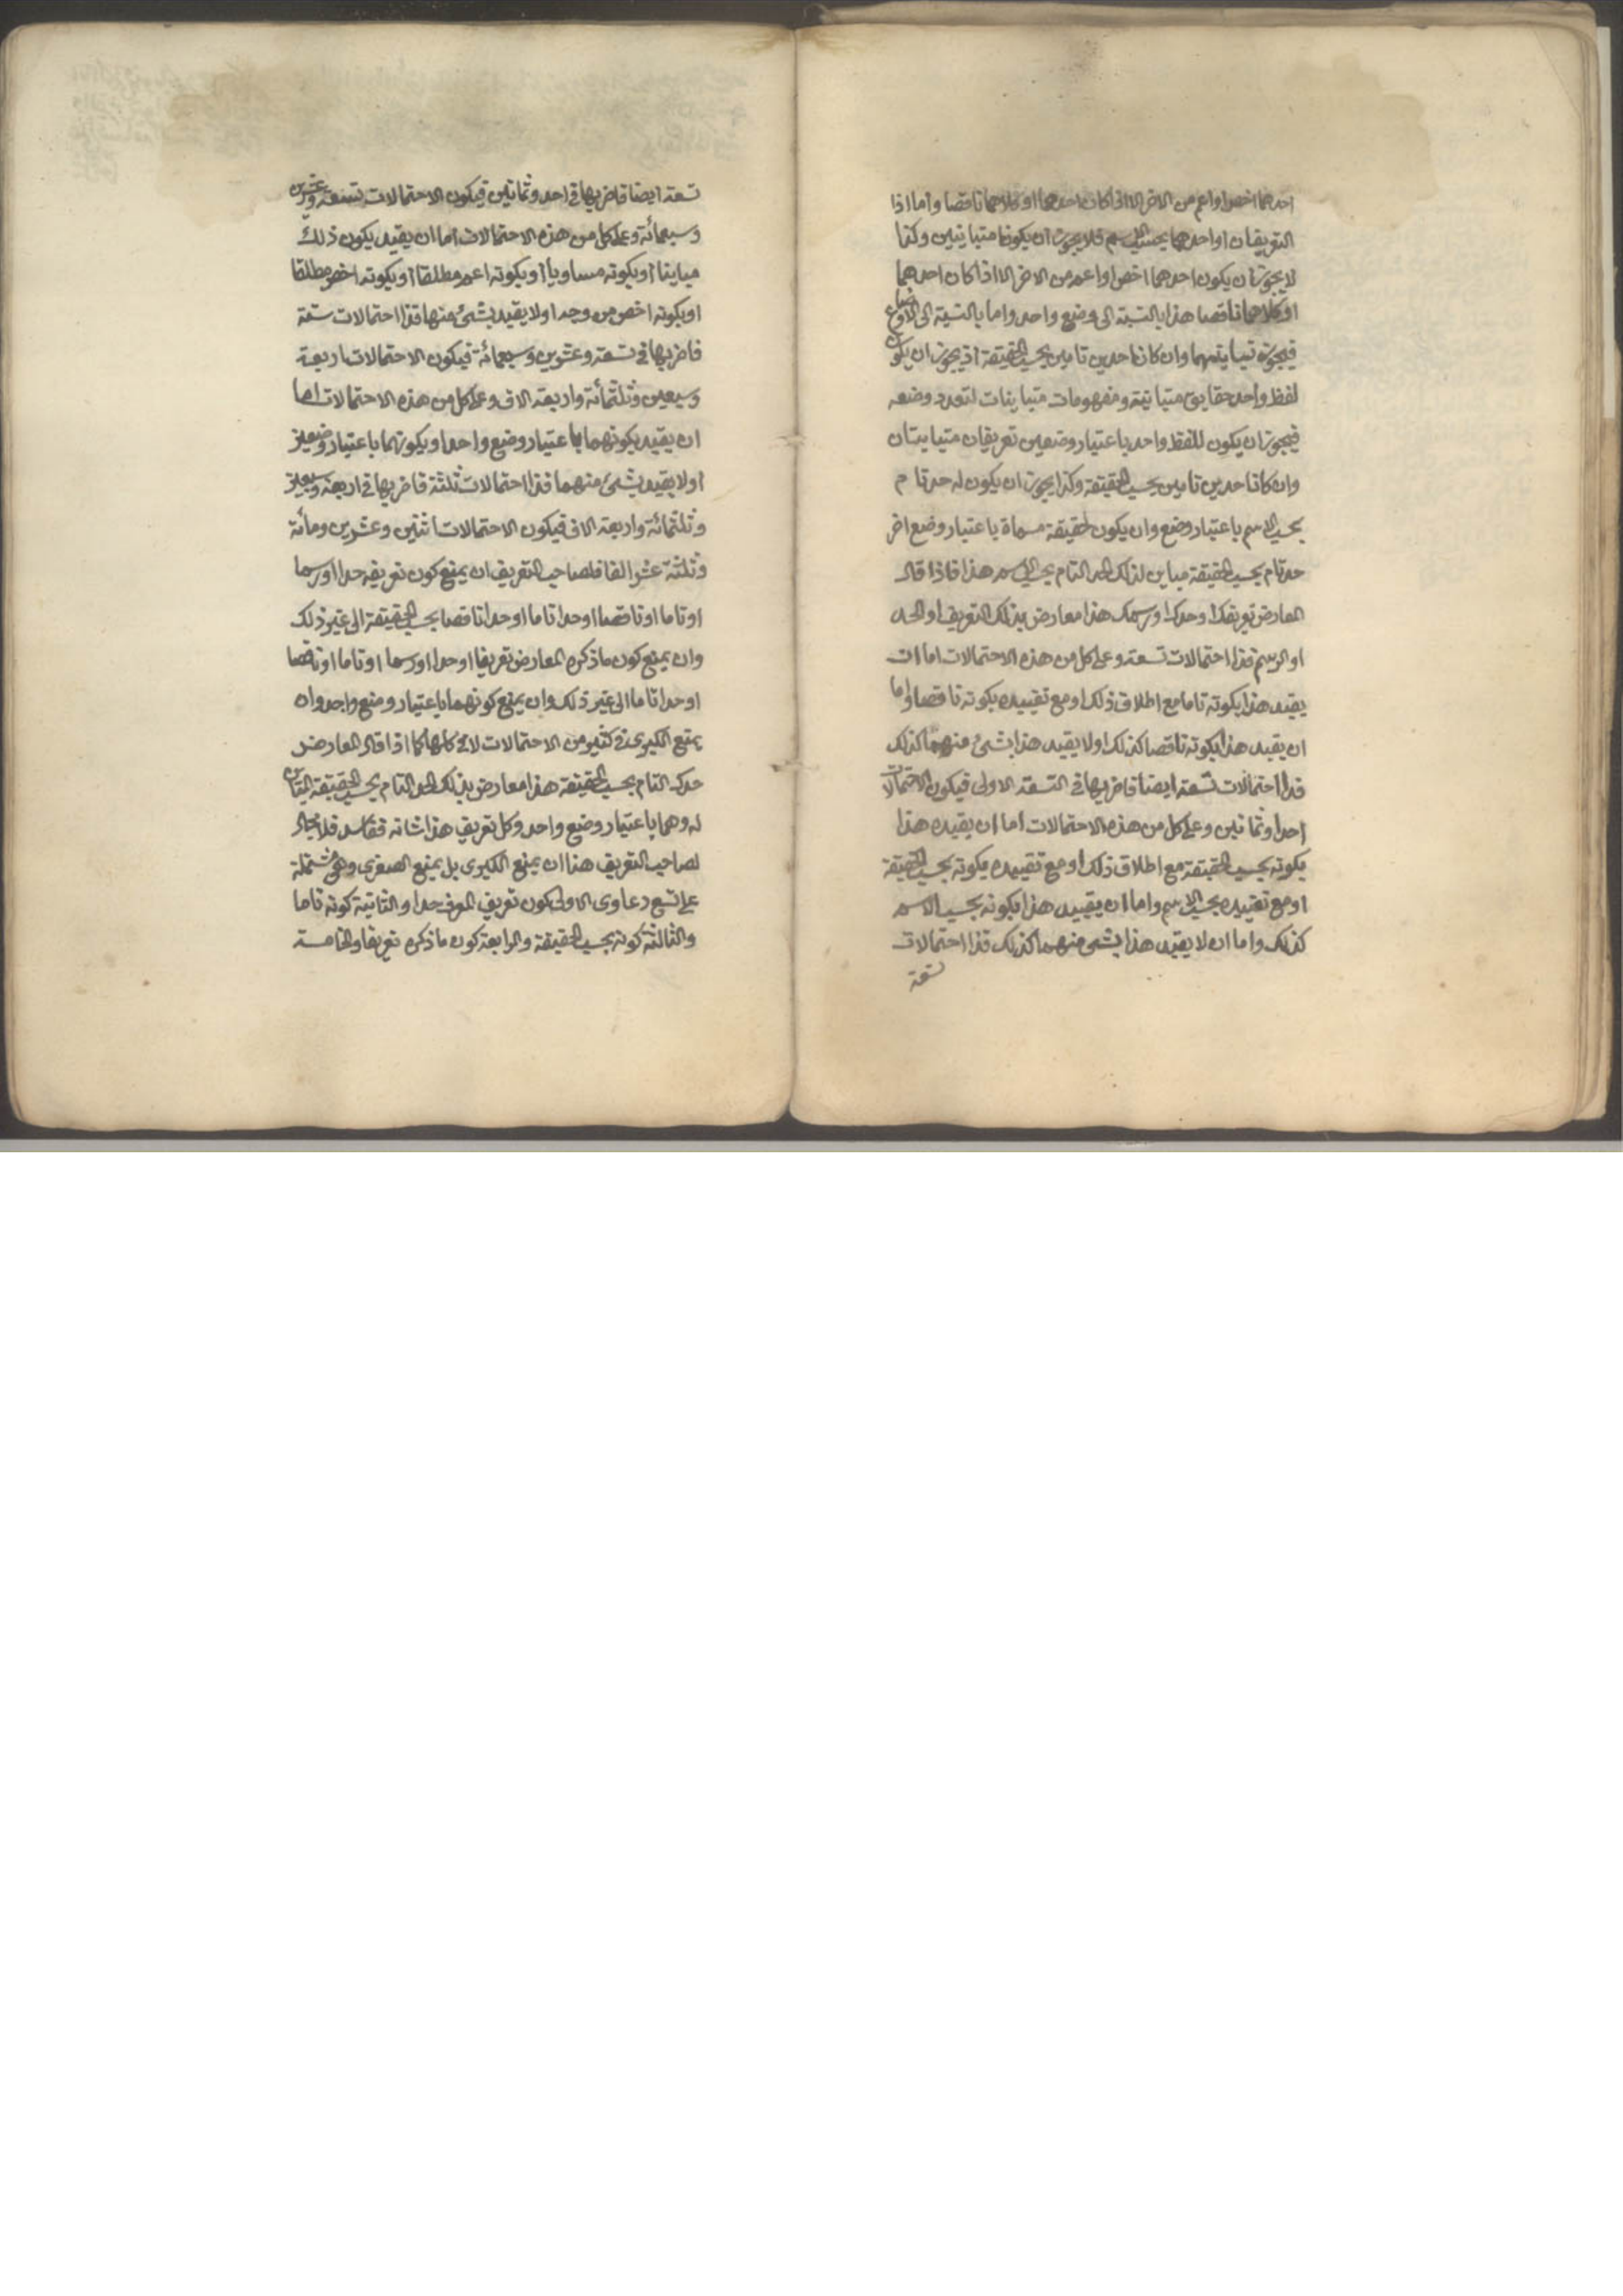 احدهما اخص او اعم من الاخر الا اذا كان احدهما او كلاهما ناقصا واما اذا
التعريفان او احدهما بحسب الاسم فلا يجوز ان يكونا متباينين وكذا
لا يجوز ان يكون احدهما اخص او اعم من الاخر الا اذا كان احدهما
او كلاهما ناقصا هذا بالنسبة الى وضع واحد واما بالنسبة الى الاوضاع
فيجوز تباينهما وان كانا حدين تامين بحسب الحقيقة اذ يجوز ان يكون
لفظ واحد حقايق متباينة ومفهومات متباينات لتعدد وضعه
فيجوز ان يكون للفظ واحد باعتبار وضعين تعريفان متباينان
وان كانا حدين تامين بحسب الحقيقة وكذا يجوز ان يكون له حد تام
بحسب الاسم باعتبار وضع وان يكون لحقيقة مسماة باعتبار وضع اخر
حد تام بحسب الحقيقة مباين لذلك الحد التام بحسب الاسم هذا فاذا قال
المعارض تعريفك او حدك او رسمك هذا معارض بذلك التعريف او الحد
او الرسم فذا احتمالات تسعة وعلى كل من هذه الاحتمالات اما ان
يقيد هذا بكونه تاما مع اطلاق ذلك او مع تقييده بكونه ناقصا واما
ان يقيد هذا بكونه ناقصا كذلك او لا يقيد هذا بشئ منهما كذلك
فذا احتمالات تسعة ايضا فاضربها في التسعة الاولى فيكون الاحتمالات
احدا وثمانين وعلى كل من هذه الاحتمالات اما ان يقيد هذا
بكونه بحسب الحقيقة مع اطلاق ذلك او مع تقييده بكونه بحسب الحقيقة
او مع تقييده بحسب الاسم واما ان يقييد هذا بكونه بحسب الاسم
كذلك واما ان لا يقيد هذا بشئ منهما كذلك فذا احتمالات
تسعة
تسعة ايضا فاضربها في احد وثمانين فيكون الاحتمالات تسعة وعشرين
وسبعمائة وعلى كل من هذه الاحتمالات اما ان يقيد بكون ذلك
مباينا او بكونه مساويا او بكونه اعم مطلقا او بكونه اخص مطلقا
او بكونه اخص من وجه او لا يقيد بشئ منها فذا احتمالات ستة
فاضربها في تسعة وعشرين وسبعمائة فيكون الاحتمالات اربعة
وسبعين وثلثمائة واربعة الاف وعلى كل من هذه الاحتمالات اما
ان يقيد بكونهما باعتبار وضع واحد او بكونهما باعتبار وضعين
او لا يقيد بشئ منهما فذا احتمالات ثلثة فاضربها في اربعة وسبعين
وثلثمائة واربعة الاف فيكون الاحتمالات اثنين وعشرين ومائة
وثلثة عشر الفا فلصاحب التعريف ان يمنع كون تعريفه حدا او رسما
او تاما او ناقصا او حدا تاما او حدا ناقصا بحسب الحقيقة الى غير ذلك
وان يمنع كون ما ذكره المعارض تعريفا او حدا او رسما او تاما او ناقصا
او حدا تاما الى غير ذلك وان يمنع كونهما باعتبار وضع واحد وان
يمنع الكبرى في كثير من الاحتمالات لا في كلها كما اذا قال المعارض
حدك التام بحسب الحقيقة هذا معارض بذلك الحد التام بحسب الحقيقة المباين
له وهما باعتبار وضع واحد وكل تعريف هذا شانه ففاسد فلا مجال
لصاحب التعريف هنا ان يمنع الكبرى بل يمنع الصغرى وهي مشتملة
على تسع دعاوى الاولى كون تعريف المعرف حدا والثانية كونه تاما
والثالثة كونه بحسب الحقيقة والرابعة كون ما ذكره تعريفا والخامسة